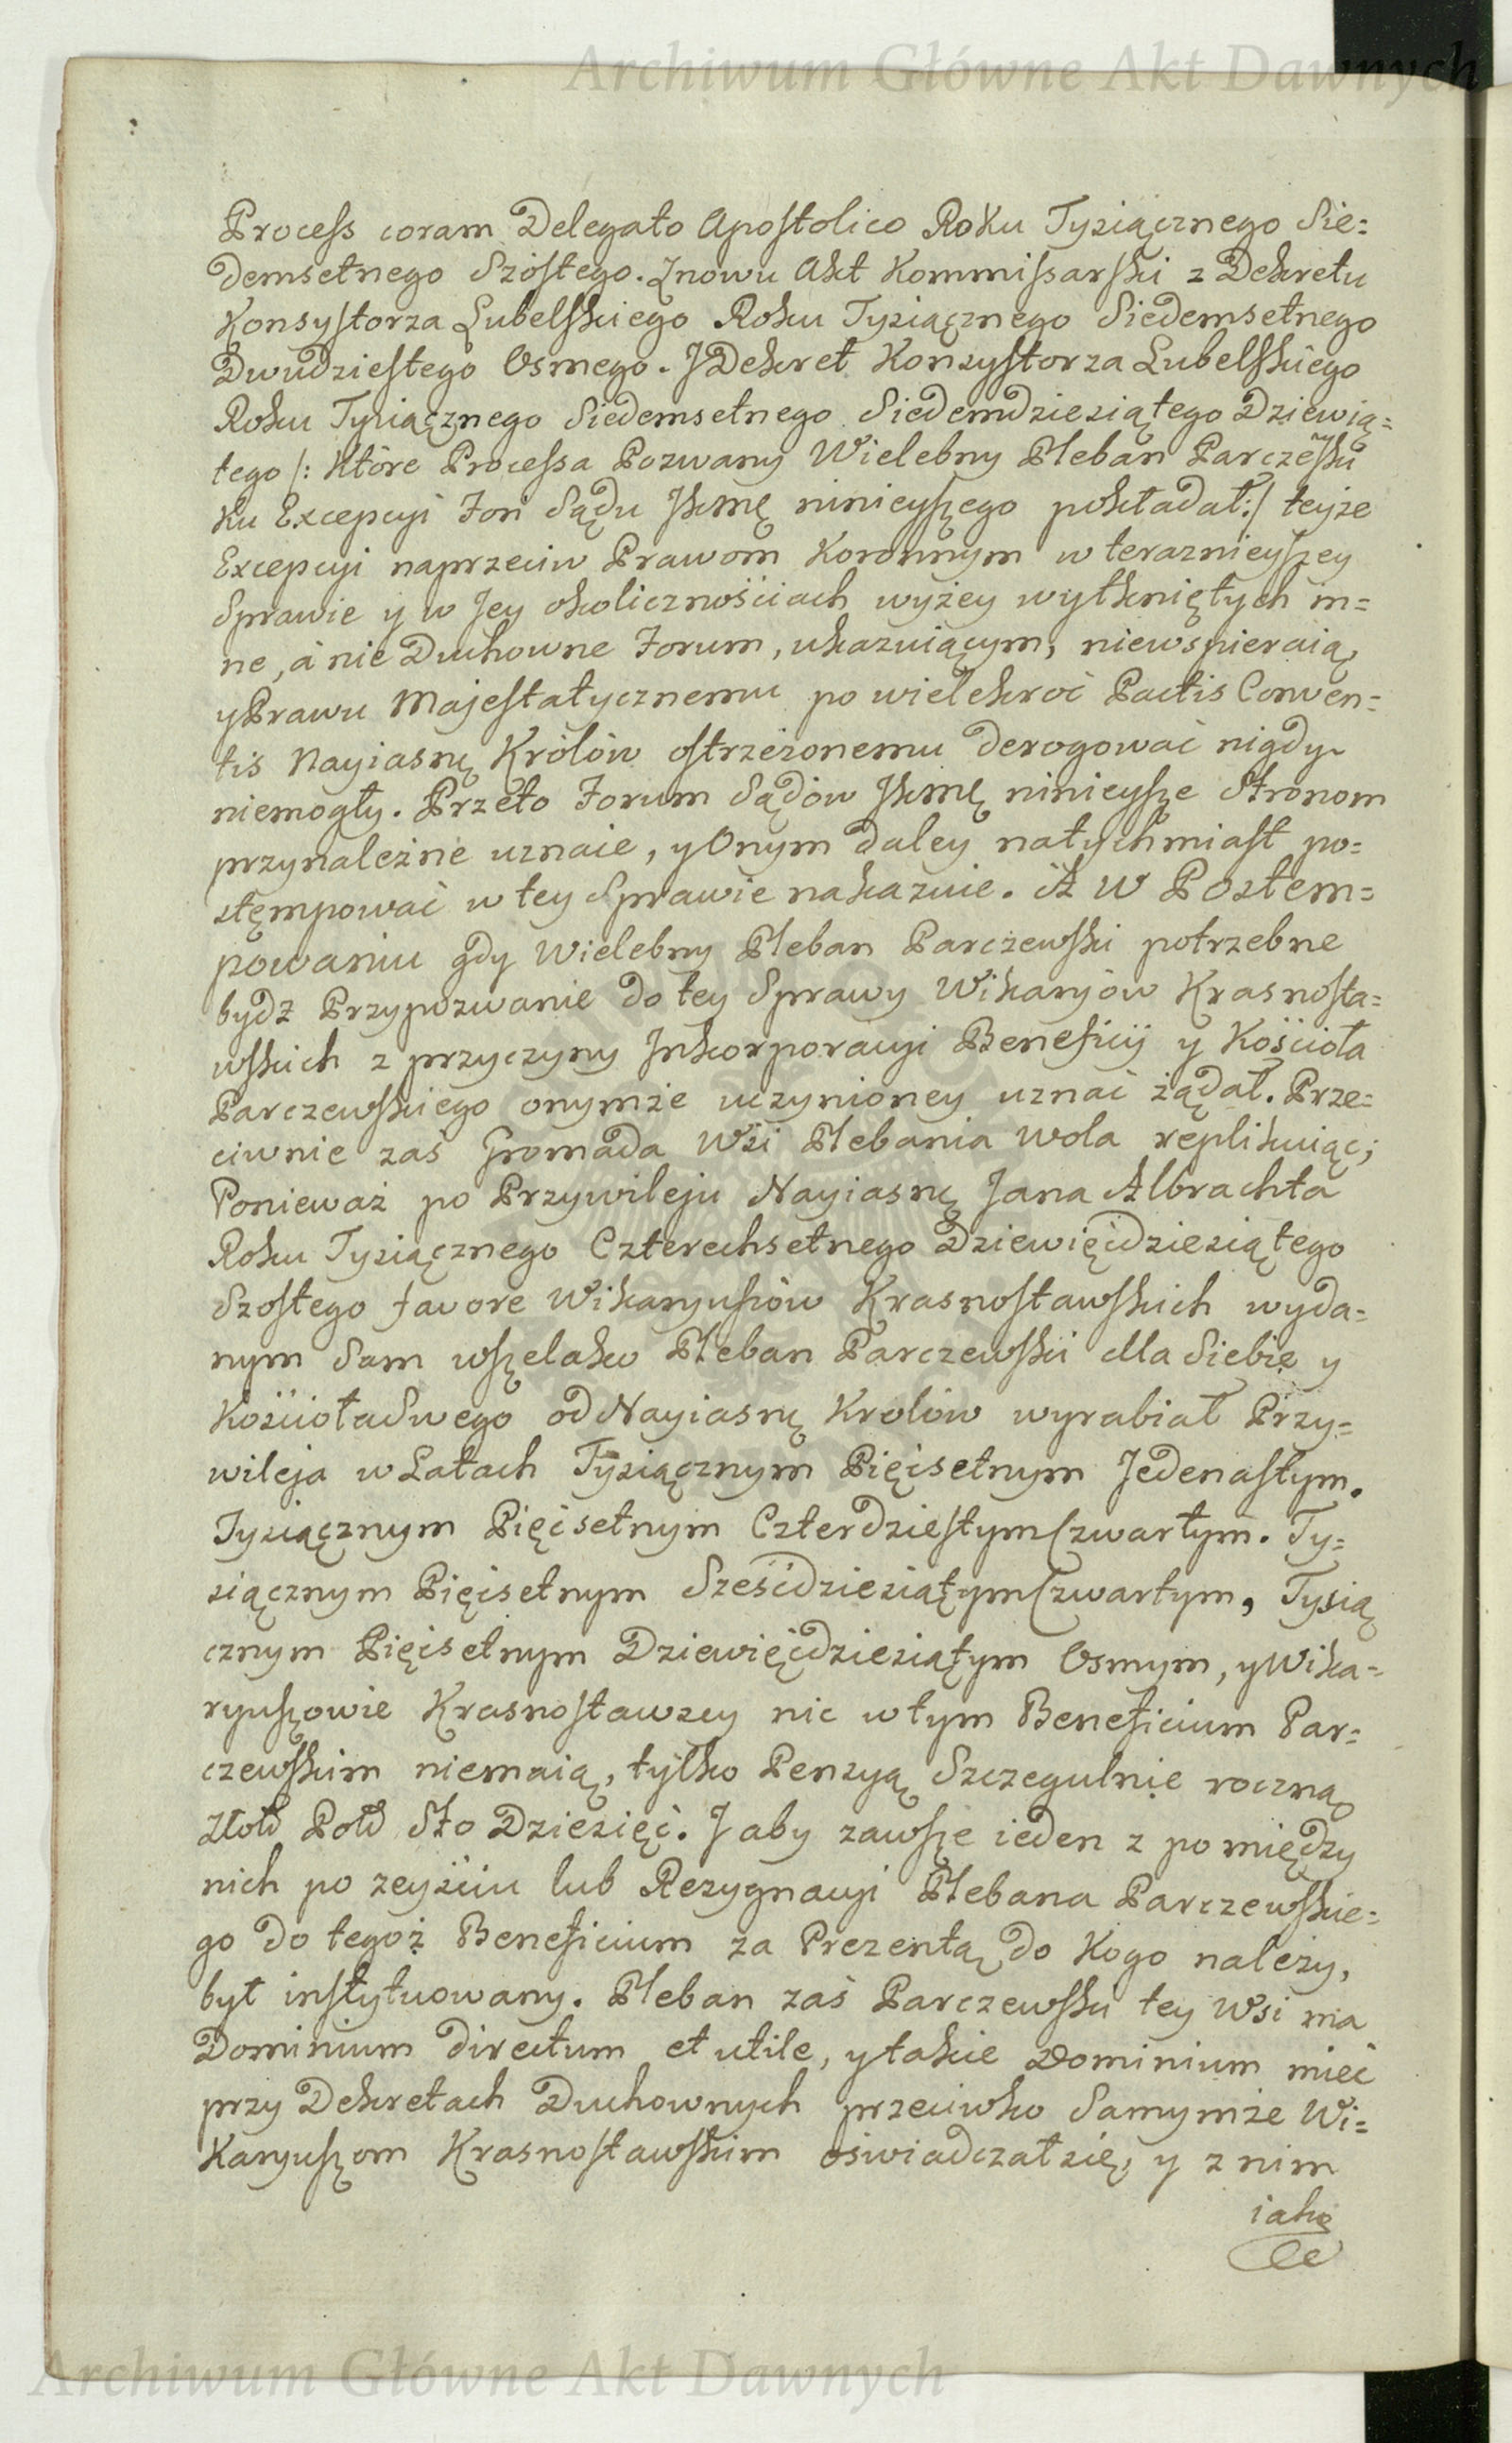 Archiwum Główne Akt Dawnych
Process coram Delegato Apostolico Roku Tysiącznego Sie=
demsetnego Szóstego. Znowu Akt Kommissarski z Dekretu
Konsystorza Lubelskiego Roku Tysiącznego Siedemsetnego
Dwudziestego Osmego. J Dekret Konsystorza Lubelskiego
Roku Tysiącznego Siedemsetnego Siedemdziesiątego Dziewią=
tego /: Które Processa Pozwany Wielebny Pleban Parczewski
ku Excepcyi Fori Sądu JKmę ninieyszego pokładał :/ teyże
Excepcyi naprzeciw Prawom Koronnym w teraznieyszey
Sprawie y w Jey okolicznościach wyżey wytkniętych in=
ne, á nie Duchowne Forum, ukazuiącym, niewspieraią
y Prawu Majestatycznemu po wielekroć Pactis Conven=
tis Nayiasnę Królów ostrzeżonemu derogować nigdy
niemogły. Przeto Forum Sądów JKmę ninieysze Stronom
przynależne uznaie, y Onym daley natychmiast po=
stęmpować w tey Sprawie nakazuie. A W Postem=
powaniu gdy Wielebny Pleban Parczewski potrzebne
bydz Przypozwanie do tey Sprawy Wikaryiów Krasnosta=
wskich z przyczyny Jnkorporacyi Beneficij y Kościoła
Parczewskiego onymże uczynioney uznać żądał. Prze=
ciwnie zaś Gromada Wsi Plebania Wola replikuiąc;
Ponieważ po Przywileju Nayiasnę Jana Albrachta
Roku Tysiącznego Czterechsetnego Dziewięćdziesiątego
Szostego favore Wikaryuszów Krasnostawskich wyda=
nym Sam wszelako Pleban Parczewski dla Siebie y
Kościoła Swego od Nayiasnę Krolów wyrabiał Przy=
wileja w Latach Tysiącznym Pięćsetnym Jedenastym.
Tysiącznym Pięćsetnym Czterdziestym Czwartym. Ty=
siącznym Pięćsetnym Sześćdziesiątym Czwartym, Tysią
cznym Pięćsetnym Dziewięćdziesiątym Osmym, y Wika=
ryuszowie Krasnostawscy nic w tym Beneficium Par=
czewskim niemaią, tylko Penzyą Szczegulnie roczną
Złotł Polł Sto Dziesięć. J aby zawsze ieden z pomiędzy
nich po zeyściu lub Rezygnacyi Plebana Parczewskie=
go do tegoż Beneficium za Prezentą do Kogo należy,
był instytuowany. Pleban zaś Parczewski tey Wsi ma
Dominium directum et utile, y takie Dominium mieć
przy Dekretach Duchownych przeciwko Samymże Wi=
karyuszom Krasnostawskim oświadczał się, y z nim
iako
Archiwum Główne Akt Dawnych